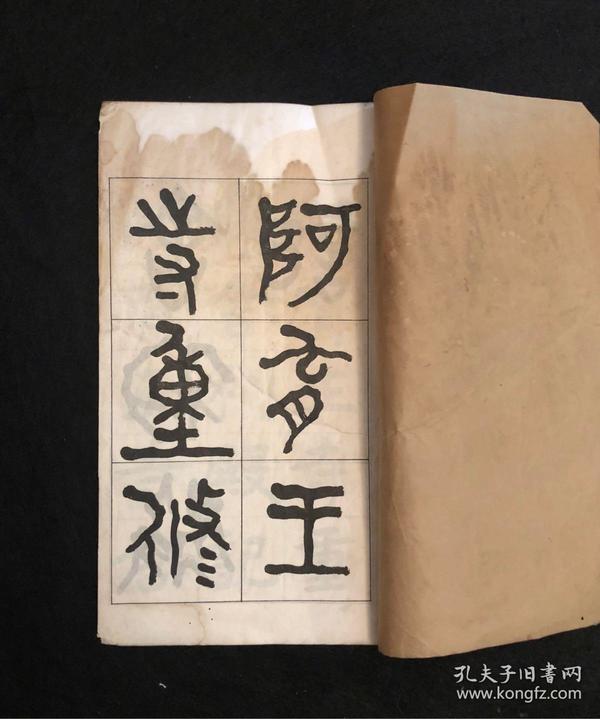 阿育王
寺重修
孔夫子旧书网
www.kongfz.com